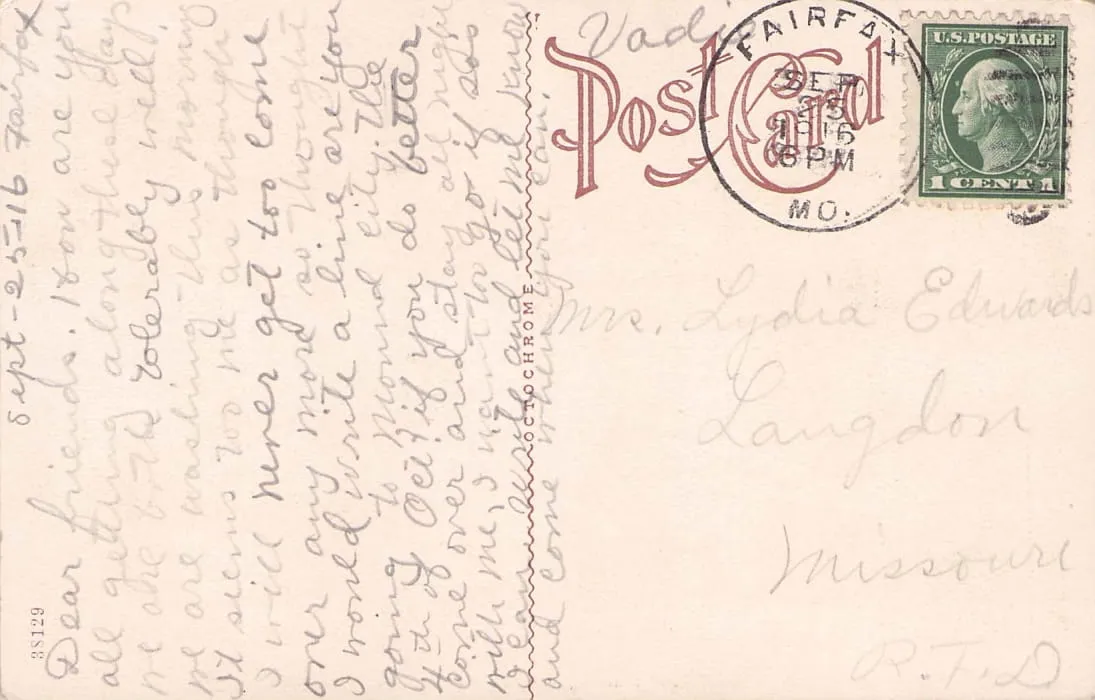 Sept-25-16 Fairfax
Dear friends. How are you
all getting along these days
we are both tolerabley well,
we are washing this morning
it seems too me as though
I will never get too come
over any more so thout
I would write a line are you
going to Mound city. the
4th of Oct; if you do better
come over and stay all night
with me, I want to go if so
I can write and let me know
and come when you can.
Vadi
Post Card
FAIRFAX
SEP
25
1916
6 PM
MO.
U.S. POSTAGE
1 CENT 1
Mrs. Lydia Edwards
Langdon
Missouri
R.F.D
OCTOCHROME
38129